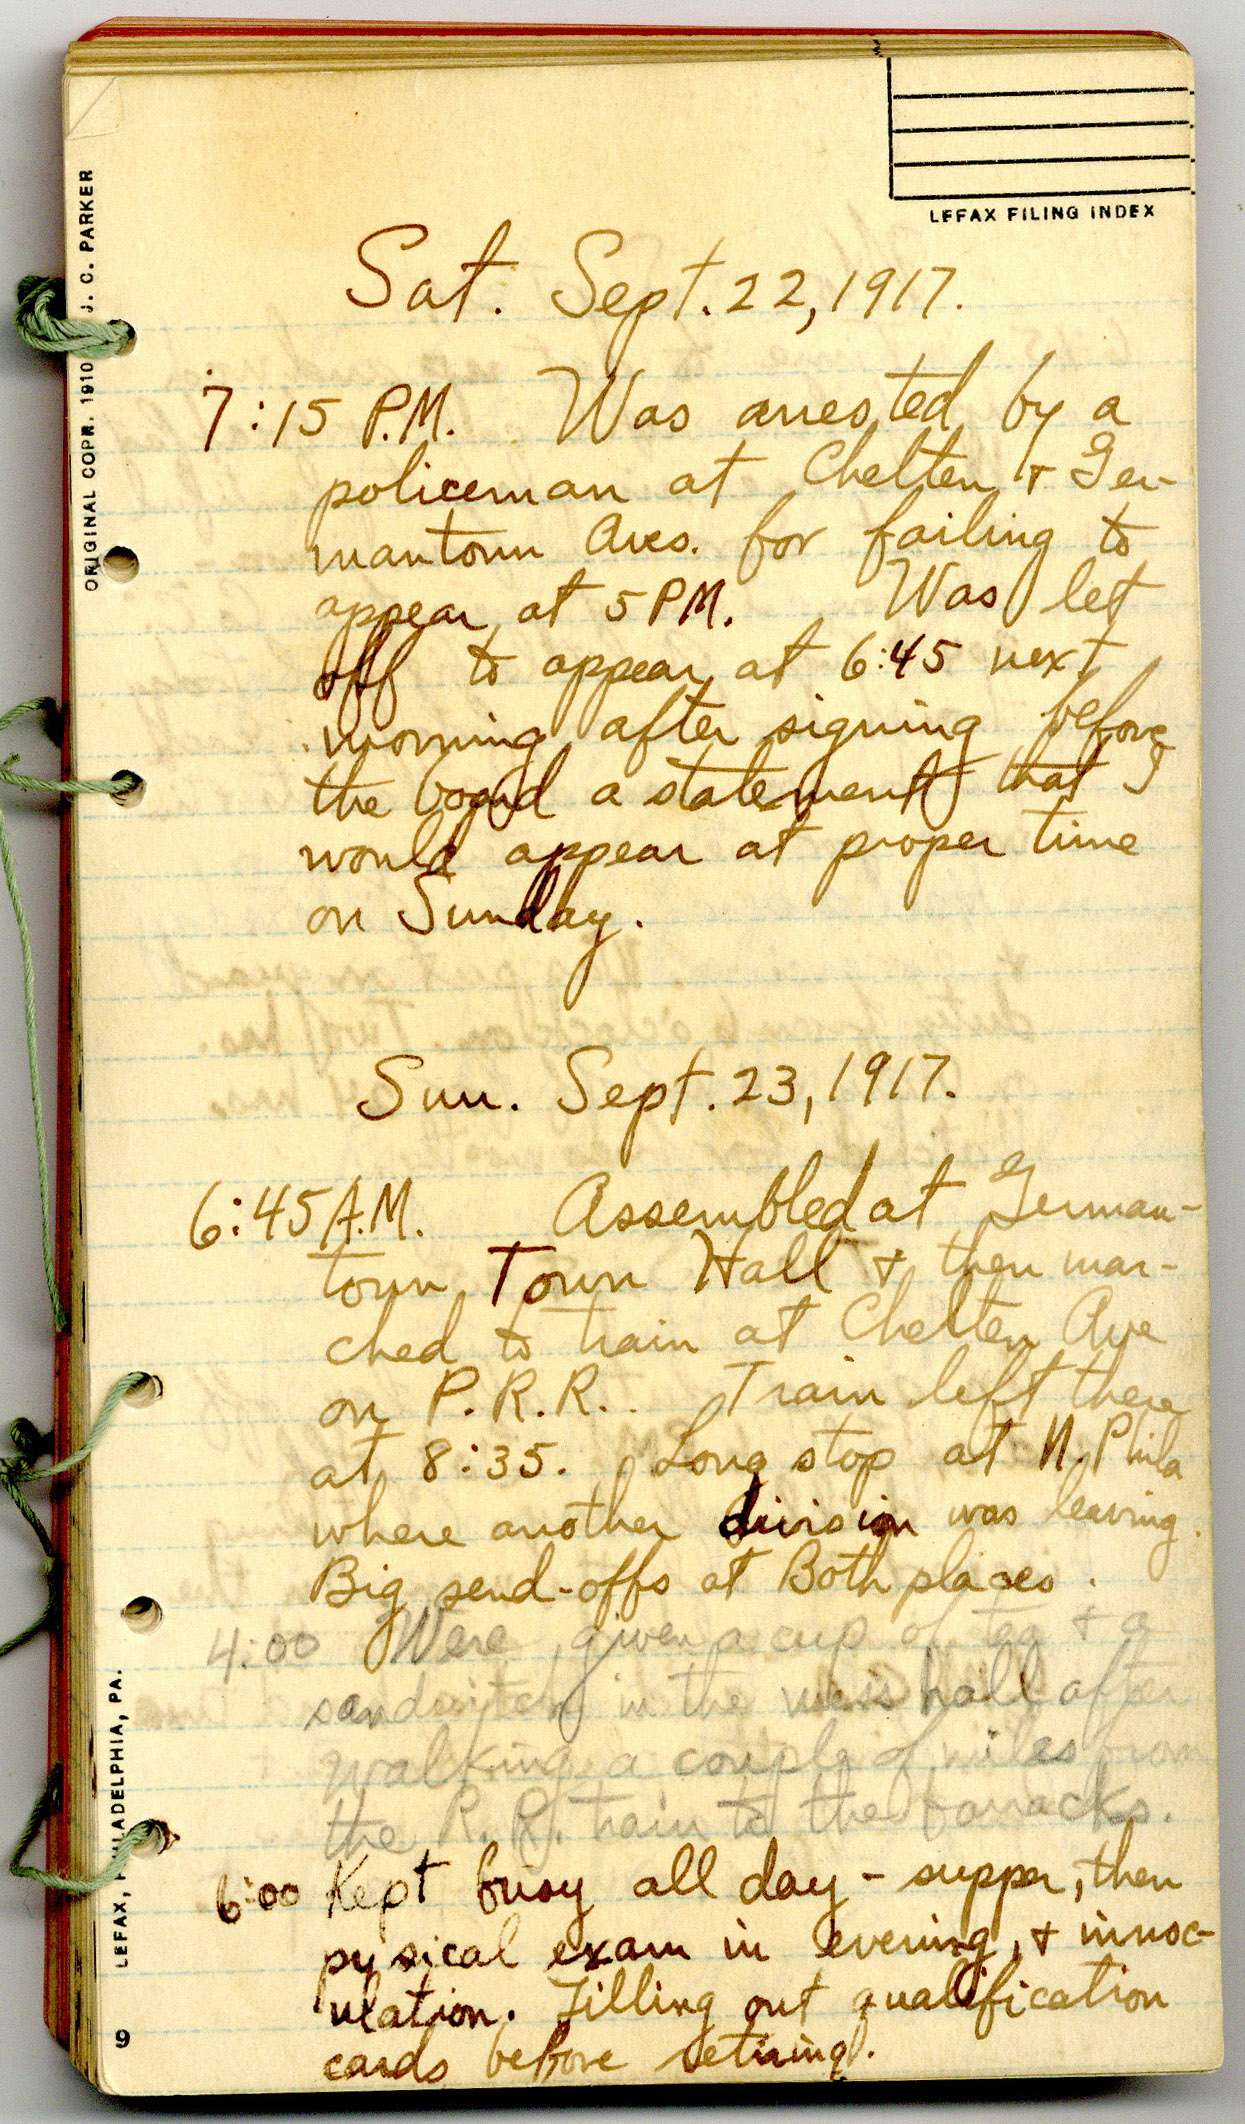 LEFAX FILING INDEX
ORIGINAL COPR. 1910 J. C. PARKER
Sat. Sept. 22, 1917.
7:15 P.M. Was arrested by a
policeman at Chelten & Ger-
mantown Aves. for failing to
appear at 5 PM. Was let
off to appear at 6:45 next
morning after signing before
the board a statement that I
would appear at proper time
on Sunday.
Sun. Sept. 23, 1917.
6:45 A.M. Assembled at German-
town Town Hall & then mar-
ched to train at Chelten Ave
on P.R.R. Train left there
at 8:35. Long stop at N. Phila
where another division was leaving.
Big send-offs at Both places.
4:00 Were given a cup of tea & a
sandwitch in the mess hall after
walking a couple of miles from
the R.R. train to the barracks.
6:00 Kept busy all day - supper, then
pysical exam in evening, & innoc-
ulation. Filling out qualification
cards before retiring.
LEFAX, PHILADELPHIA, PA.
9